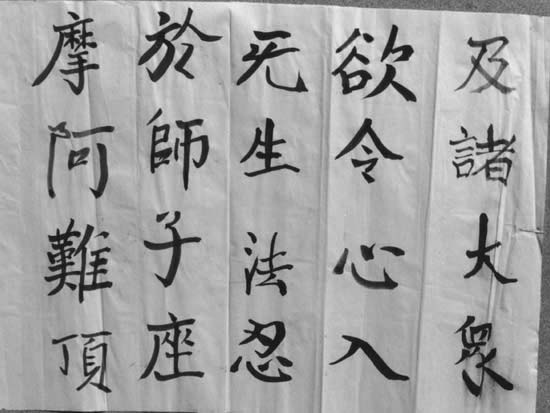 及諸大眾
欲令心入
无生法忍
於師子座
摩阿難頂